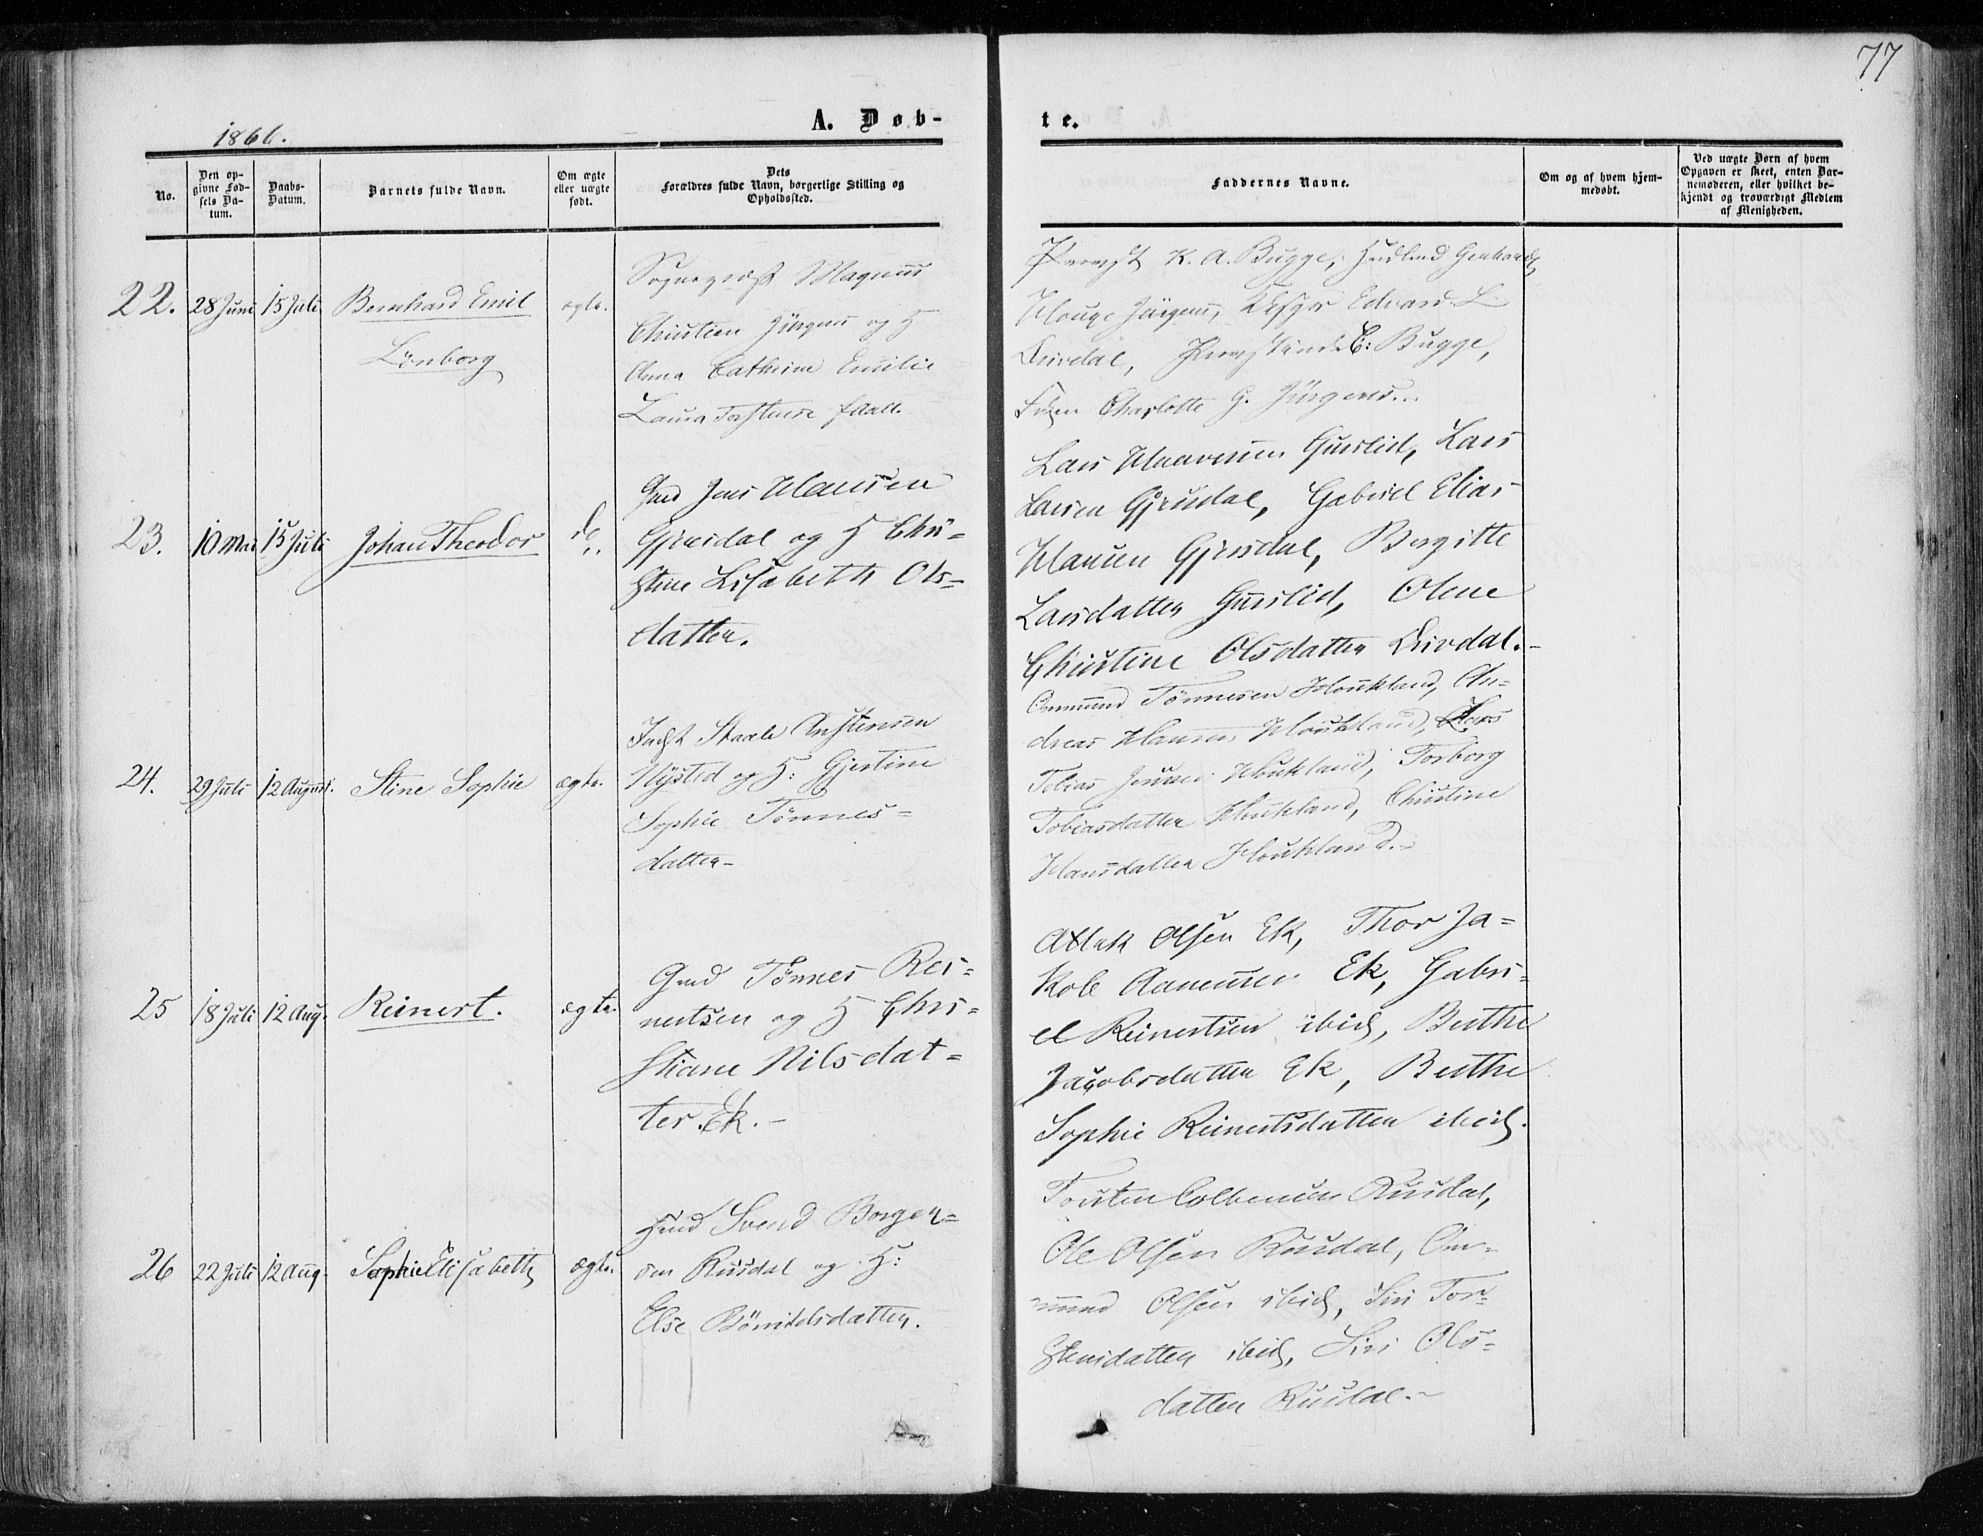 77
1866.
A. Døb-
te.
No.
Den op-
givne Fød-
sels Da-
tum.
Daabs-
Datum.
Barnets fulde Navn.
Om ægte
eller uægte
født.
Dets
Forældres fulde Navn, borgerlige Stilling og
Opholdssted.
Faddernes Navne.
Om og af hvem hjem-
medøbt.
Ved uægte Børn af hvem
Opgaven er skeet, enten Bar-
nemoderen, eller hvilket be-
kjendt og troværdigt Medlem
af Menigheden.
22.
28 Juni
15 Juli
Bernhard Emil
Lønborg
ægte.
Sognepræst Magnus
Christian Jürgens og H
Anna Cathrine Emilie
Laura f. Aall.
Provst K. A. Bugge,
Hauge Jürgens, Edvard L.
Sirdal, E: Bugge,
Frøken Charlotte G. Jürgens.
23.
10 Mai
15 Juli
Johan Theodor
do
Gmd Jens Hansen
Gjersdal og H Chri-
stine Lisabeth Ols-
datter.
Lars Haavesen Gursled, Lars
Larsen Gjersdal, Gabriel Elias
Hansen Gjersdal, Bergitte
Larsdatter Gursled, Olene
Christine Olsdatter Sirdal.-
24.
29 Juli
12 August.
Stine Sophie
ægte.
Indst Staale Anstensen
Nysted og H: Gjertine
Sophie Tønnes-
datter-
Ommund Tønnesen Houkland, An-
dreas Hansen Houkland, Lars
Tobias Jensen Houkland, Torborg
Tobiasdatter Houkland, Christine
Hansdatter Houkland.-
25
18 Juli
12 Aug.
Reinert.
ægte.
Gmd Tønnes Rei-
nertsen og H Chri-
stiane Nilsdat-
ter Ek.-
Atlak Olsen Ek, Thor Ja-
kob Aanensen Ek, Gabri-
el Reinertsen ibid, Berthe
Jacobsdatter Ek, Berthe
Sophie Reinertsdatter ibid.
26
22 Juli
12 Aug.
Sophie Elisabeth
ægte.
Hmd Svend Borger-
sen Rusdal og H:
Else Bønildsdatter.
Torsten Colbensen Rusdal,
Ole Olsen Rusdal, Om-
mund Olsen ibid, Siri Tor-
stensdatter ibid, Siri Ols-
datter Rusdal.-